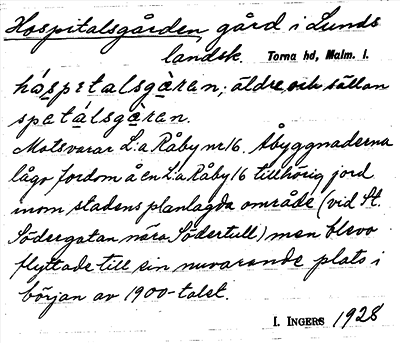 Hospitalsgården gård i Lunds
landsk. Torna hd, Malm. l.
hɑ́spɛtalsgɑ̀rɛn; äldre och sällan
spɛtálsgɑ̀rɛn.
Motsvarar L:a Råby nr 16. Åbyggnaderna
lågo fordom å en L:a Råby 16 tillhörig jord
inom stadens planlagda område (vid St.
Södergatan nära Södertull) men blevo
flyttade till sin nuvarande plats i
början av 1900-talet.
I. INGERS 1928